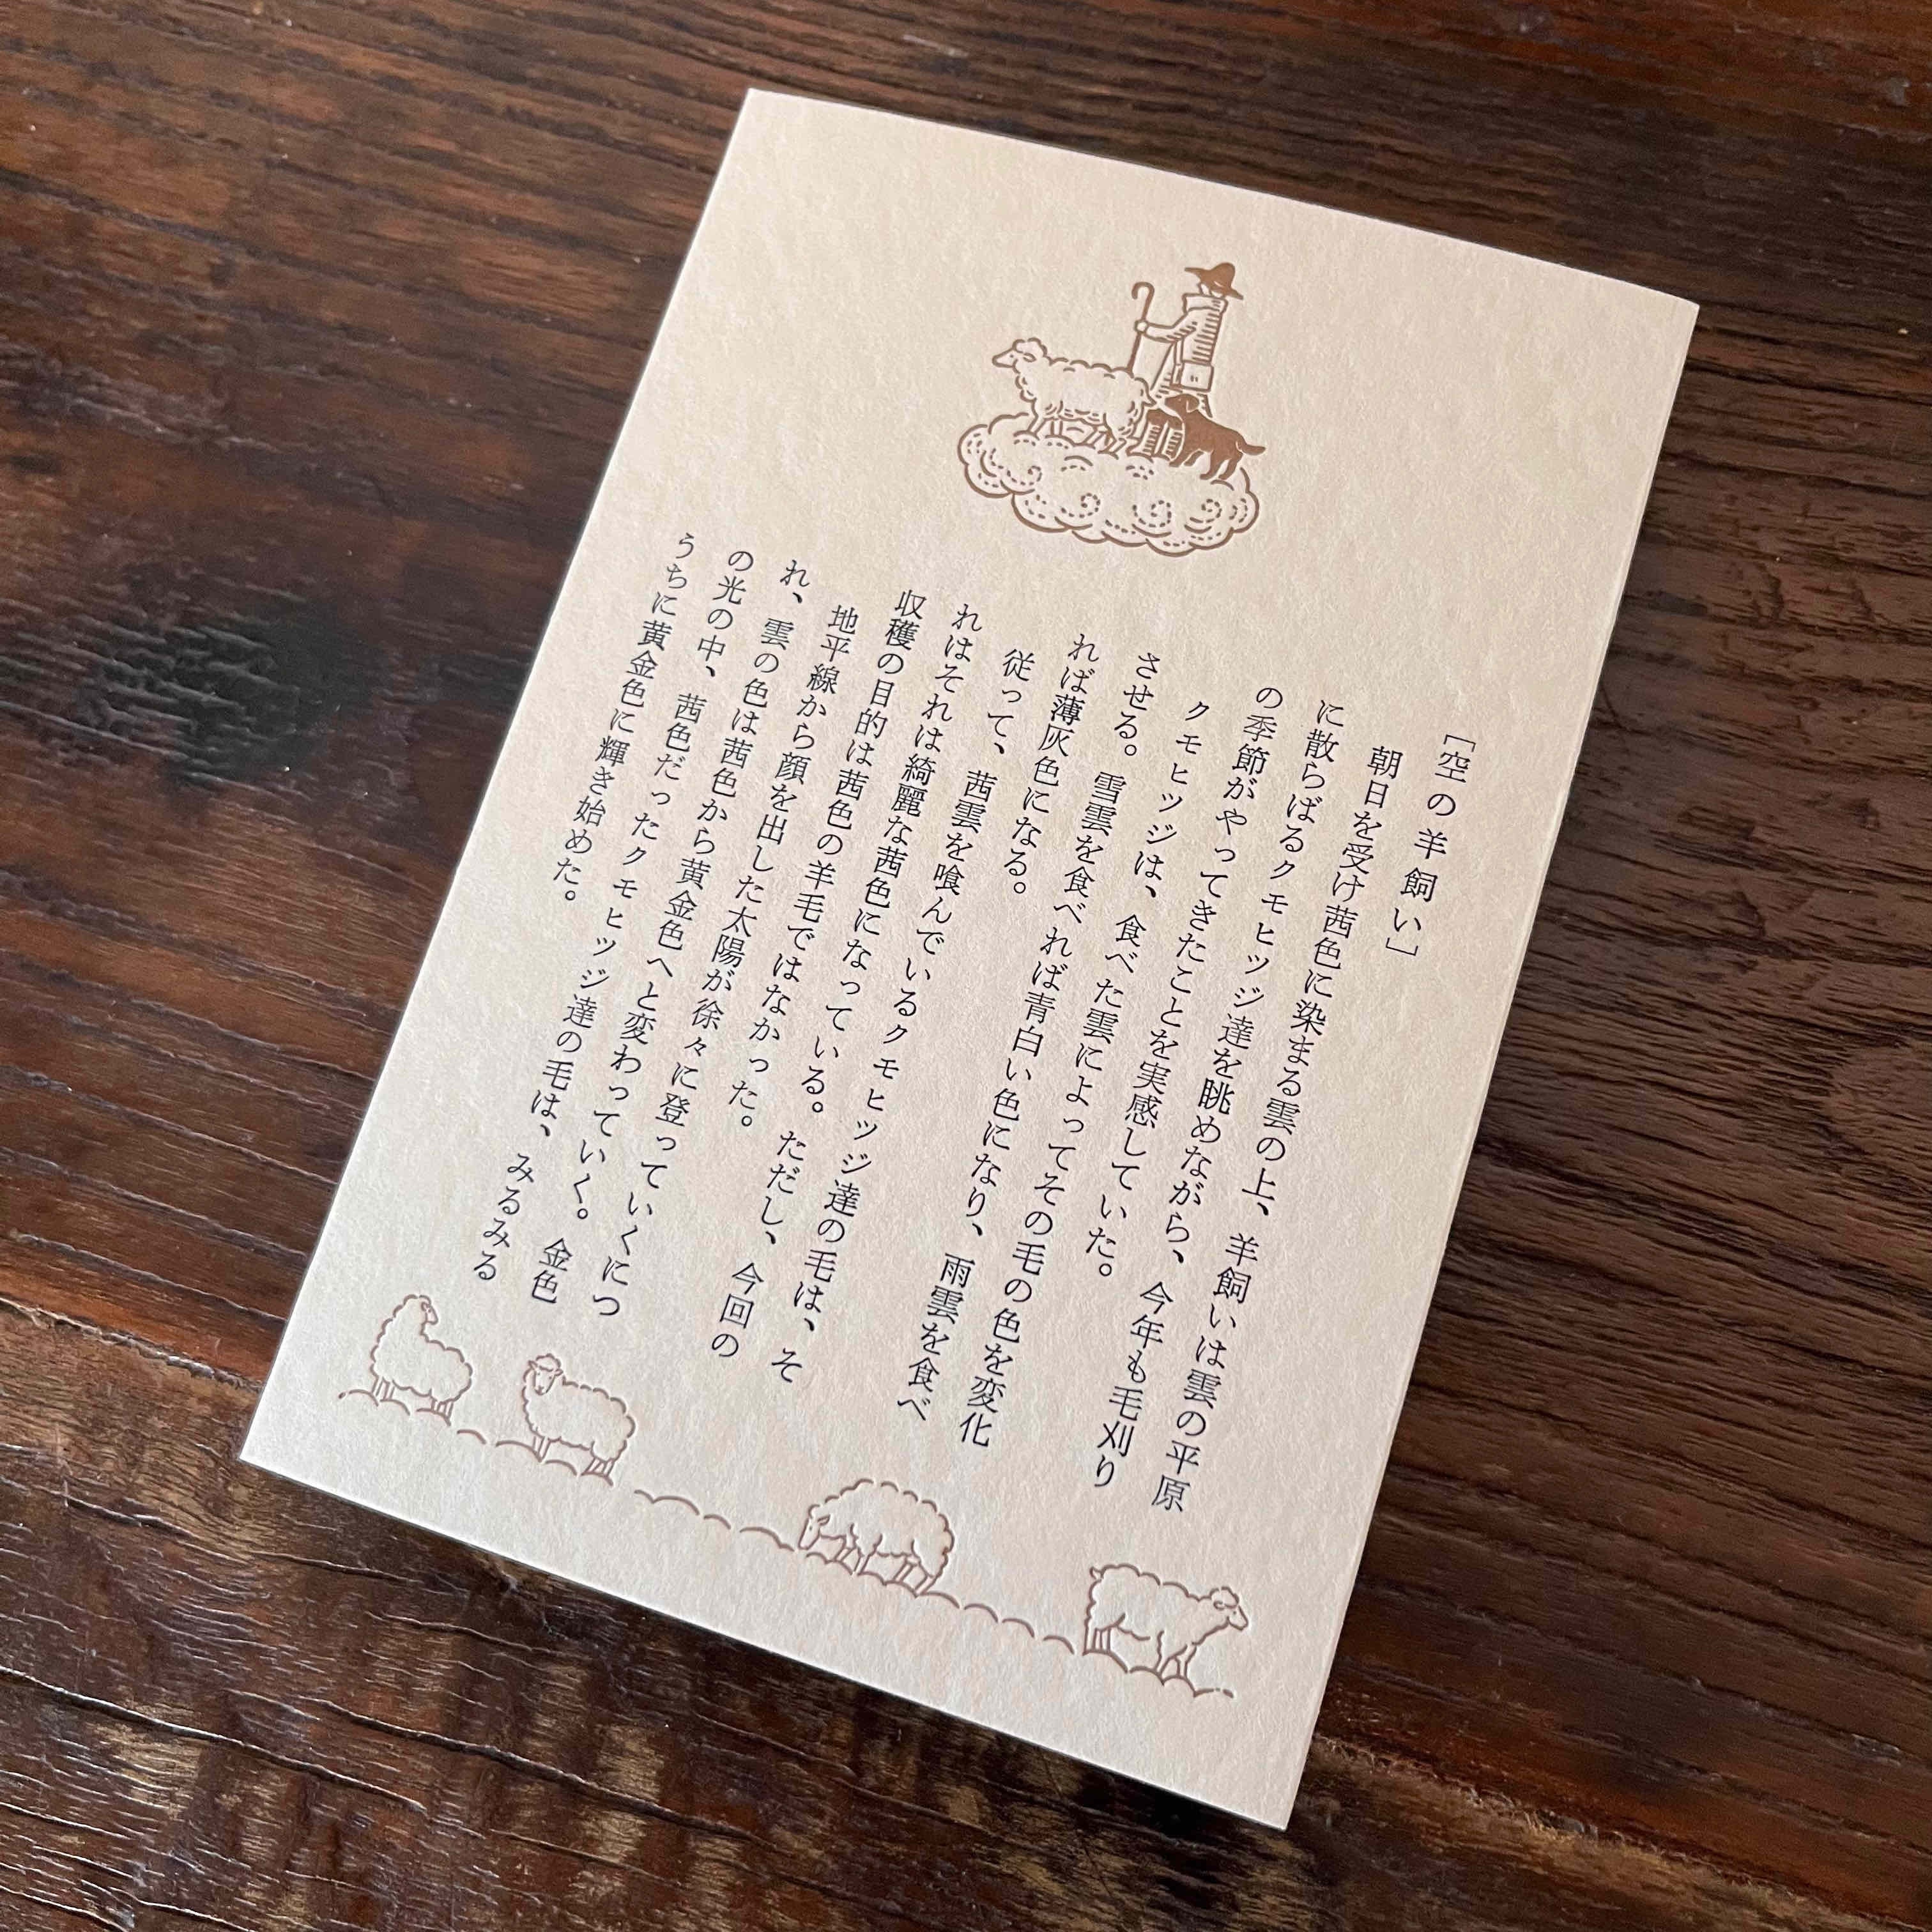 ［空の羊飼い］
朝日を受け茜色に染まる雲の上、羊飼いは雲の平原
に散らばるクモヒツジ達を眺めながら、今年も毛刈り
の季節がやってきたことを実感していた。
クモヒツジは、食べた雲によってその毛の色を変化
させる。雪雲を食べれば青白い色になり、雨雲を食べ
れば薄灰色になる。
従って、茜雲を喰んでいるクモヒツジ達の毛は、そ
れはそれは綺麗な茜色になっている。ただし、今回の
収穫の目的は茜色の羊毛ではなかった。
地平線から顔を出した太陽が徐々に登っていくにつ
れ、雲の色は茜色から黄金色へと変わっていく。金色
の光の中、茜色だったクモヒツジ達の毛は、みるみる
うちに黄金色に輝き始めた。